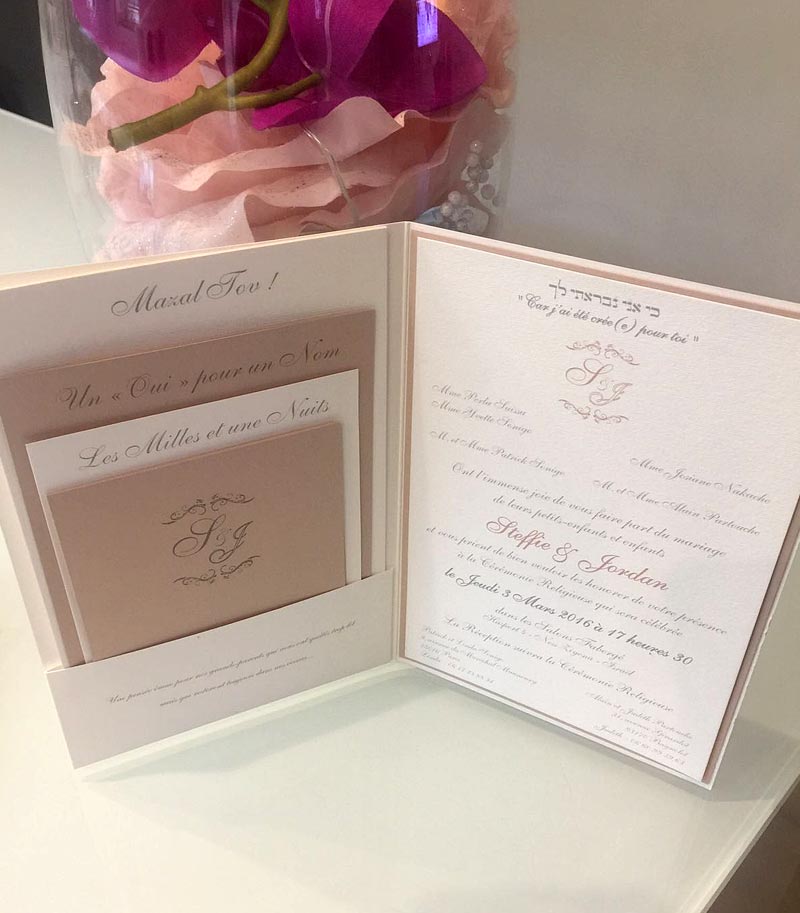 Mazal Tov !
Un « Oui » pour un Nom
Les Milles et une Nuits
S&J
Une pensée émue pour nos grands-parents qui nous ont quittés trop tôt
mais qui restent toujours dans nos coeurs...
כי אני נבראתי לך
"Car j'ai été crée(e) pour toi"
S&J
Mme Perla Suissa
Mme Yvette Sonigo
Mme Josiane Nakache
M. et Mme Patrick Sonigo
M. et Mme Alain Partouche
Ont l'immense joie de vous faire part du mariage
de leurs petits-enfants et enfants
Steffie & Jordan
et vous prient de bien vouloir les honorer de votre présence
à la Cérémonie Religieuse qui sera célébrée
le Jeudi 3 Mars 2016 à 17 heures 30
dans les Salons Fabergé
Ness Ziyona - Israël
La Réception suivra la Cérémonie Religieuse
Patrick et Linda Sonigo
75016 Paris
Linda
Alain et Judith Partouche
Judith